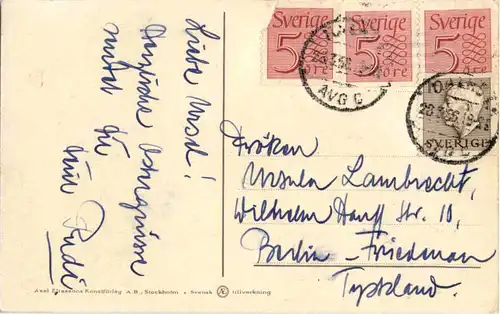 Liebe Ursel!
Herzliche Ostergrüsse
sendet Dir
Euer Rudi
Sverige
5
ÖRE
Sverige
5
Sverige
5
ÖRE
AVG C
SVERIGE
Fröken
Ursula Lambrecht,
Wilhelm Hauff Str. 10,
Berlin-Friedenau
Tyskland.
Axel Eliassons Konstförlag A.B., Stockholm - Svensk tillverkning